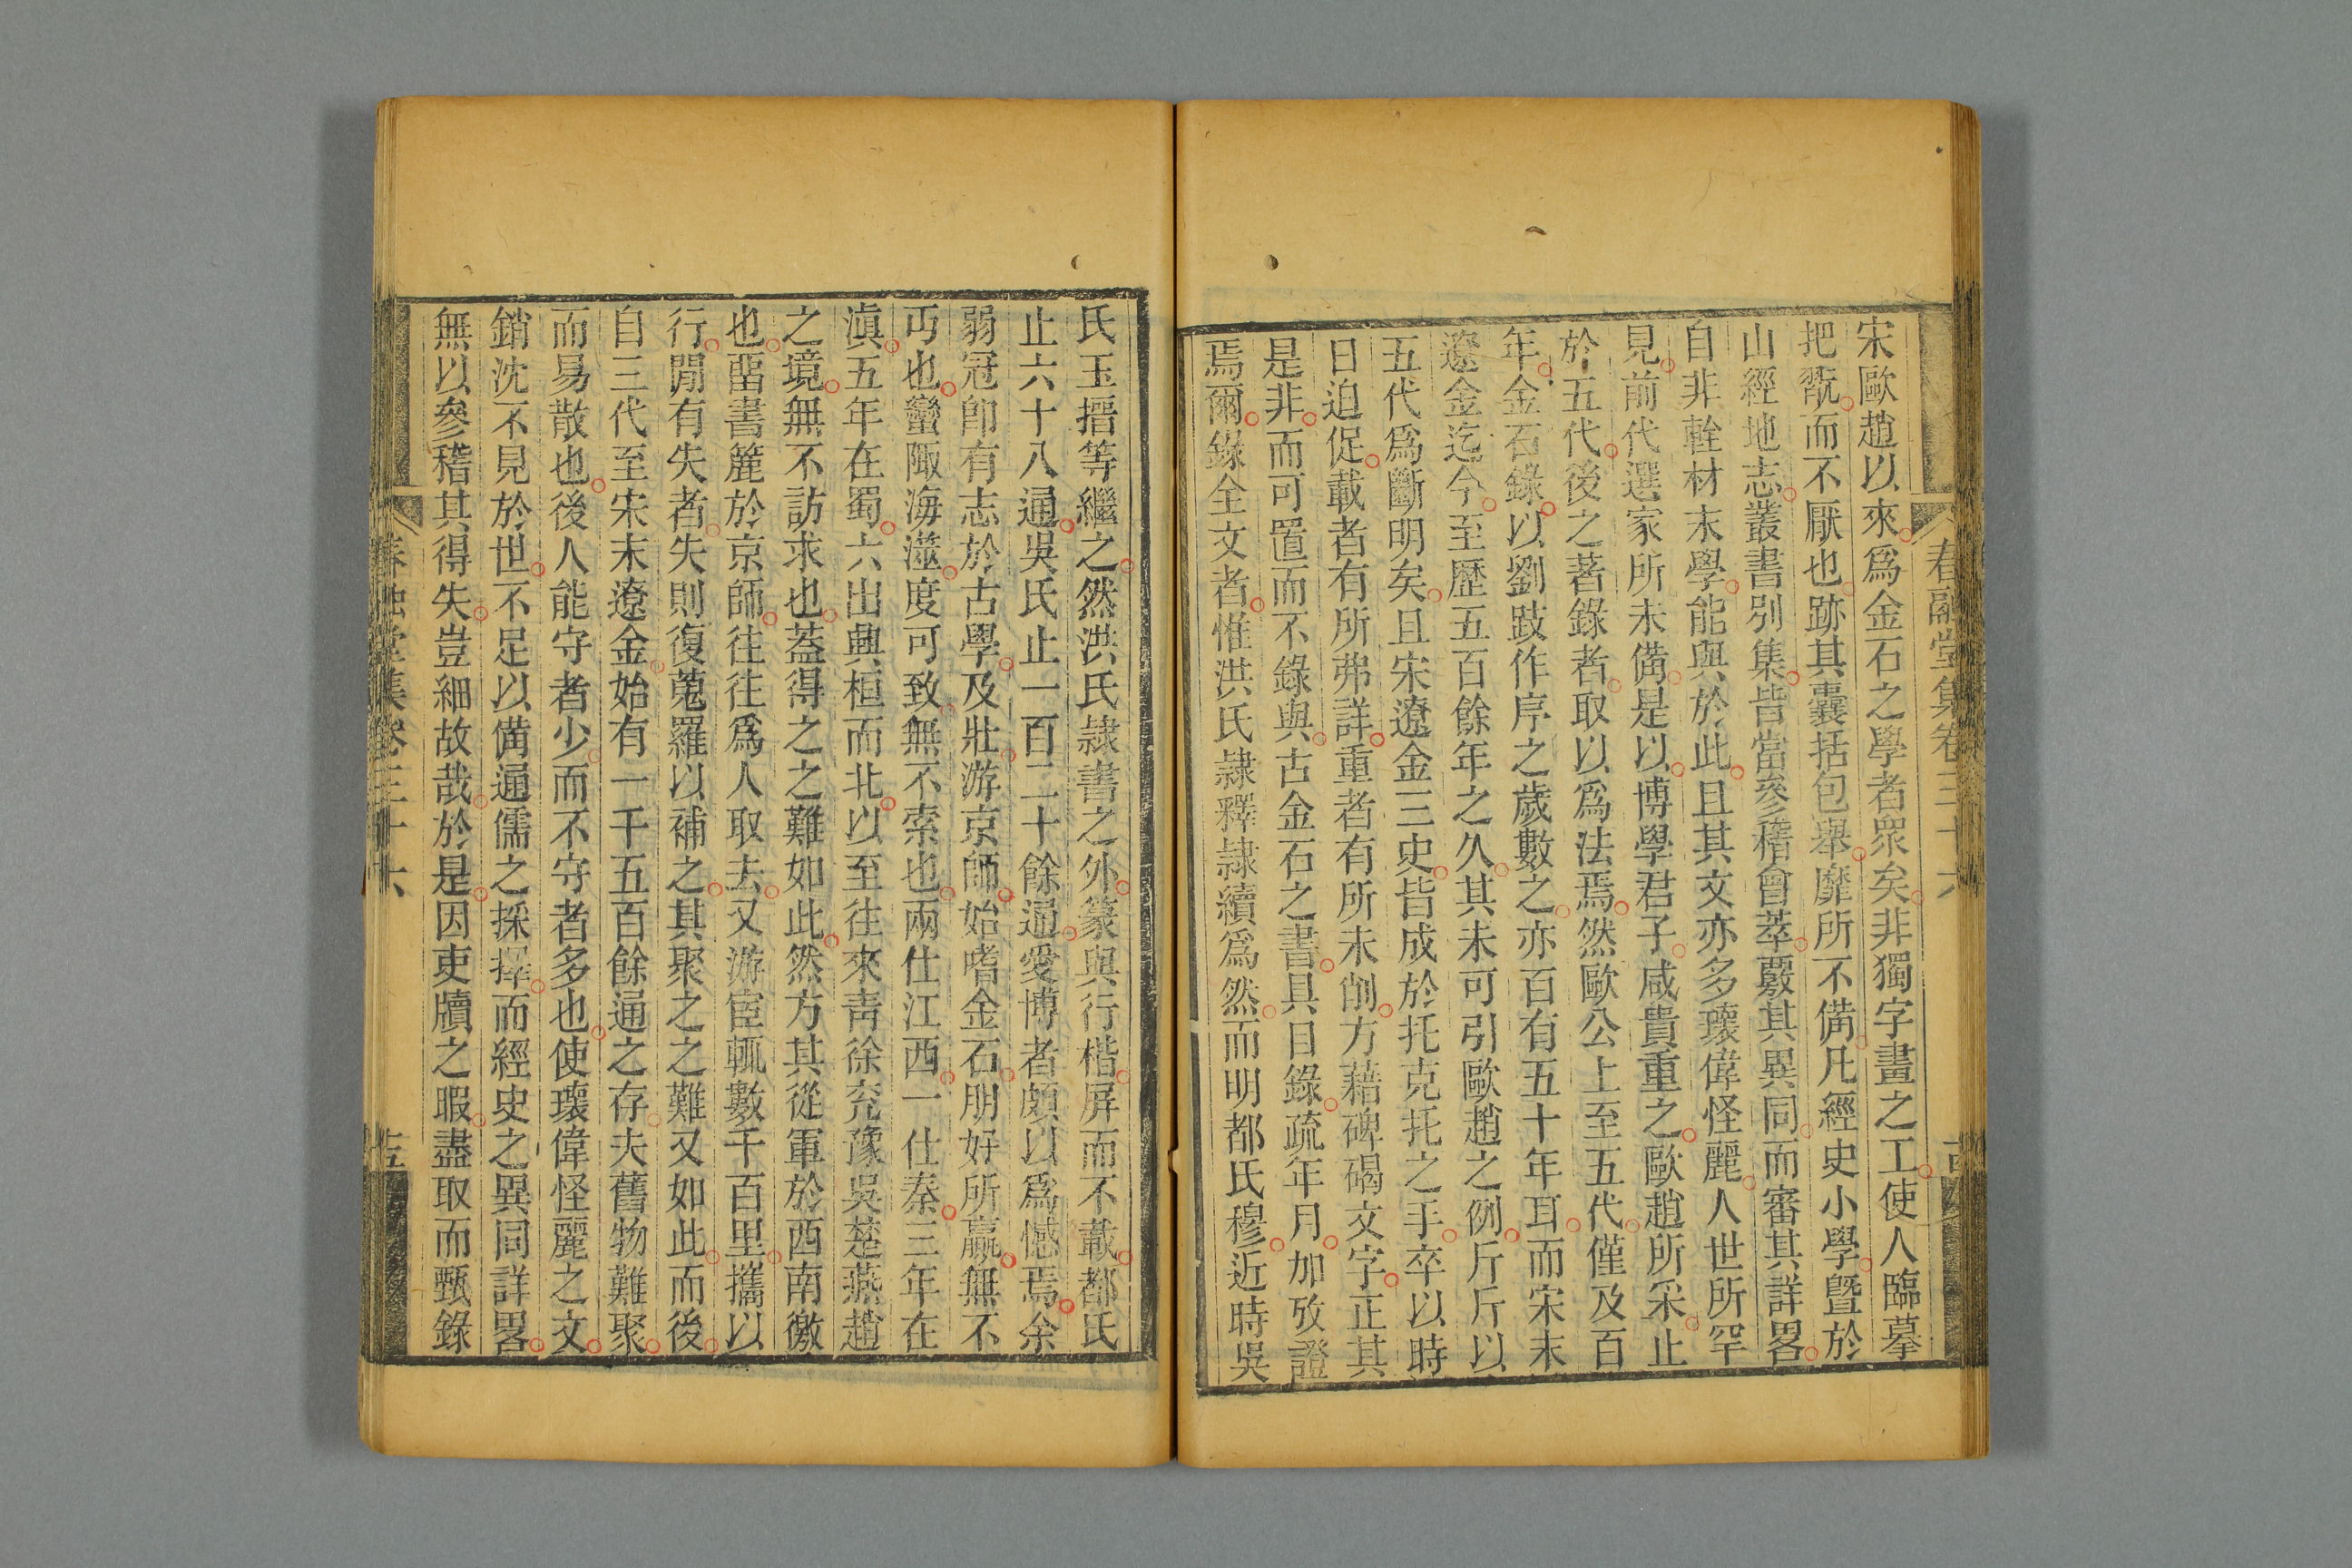 宋歐趙以來爲金石之學者衆矣非獨字畫之工使人臨摹
把翫而不厭也跡其囊括包舉靡所不備凡經史小學曁於
山經地志叢書別集皆當參稽會萃覈其異同而審其詳畧
自非輇材末學能與於此且其文亦多瓌偉怪麗人世所罕
見前代選家所未備是以博學君子咸貴重之歐趙所采止
於五代後之著錄者取以爲法焉然歐公上至五代僅及百
年金石錄以劉跂作序之歲數之亦百有五十年耳而宋末
遼金迄今至歷五百餘年之久其未可引歐趙之例斤斤以
五代爲斷明矣且宋遼金三史皆成於托克托之手卒以時
日迫促載者有所弗詳重者有所未削方藉碑碣文字正其
是非而可置而不錄與古金石之書具目錄疏年月加攷證
焉爾錄全文者惟洪氏隷釋隷續爲然而明都氏穆近時吳
春融堂集卷三十六
氏玉搢等繼之然洪氏隷書之外篆與行楷屏而不載都氏
止六十八通吳氏止一百二十餘通愛博者頗以爲憾焉余
弱冠卽有志於古學及壯游京師始嗜金石朋好所贏無不
丐也蠻陬海澨度可致無不索也兩仕江西一仕秦三年在
滇五年在蜀六出興桓而北以至往來靑徐兖豫吳楚燕趙
之境無不訪求也葢得之之難如此然方其從軍於西南徼
也畱書簏於京師往往爲人取去又游宦輒數千百里攜以
行閒有失者失則復蒐羅以補之其聚之之難又如此而後
自三代至宋末遼金始有一千五百餘通之存夫舊物難聚
而易散也後人能守者少而不守者多也使瓌偉怪麗之文
銷沈不見於世不足以備通儒之採擇而經史之異同詳畧
無以參稽其得失豈細故哉於是因吏牘之暇盡取而甄錄
春融堂集卷三十六